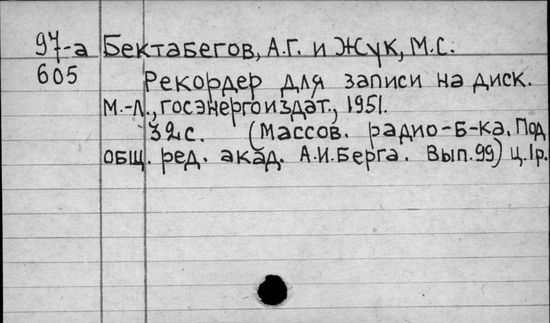 97-а Бектабегов, А.Г. и Жук, М.С.
605 Рекордер для записи на диск.
М.-Л., госэнергоиздат., 1951.
32с. (Массов. радио-б-ка. Под
общ. ред. акад. А.И.Берга. Вып.99) ц.1р.